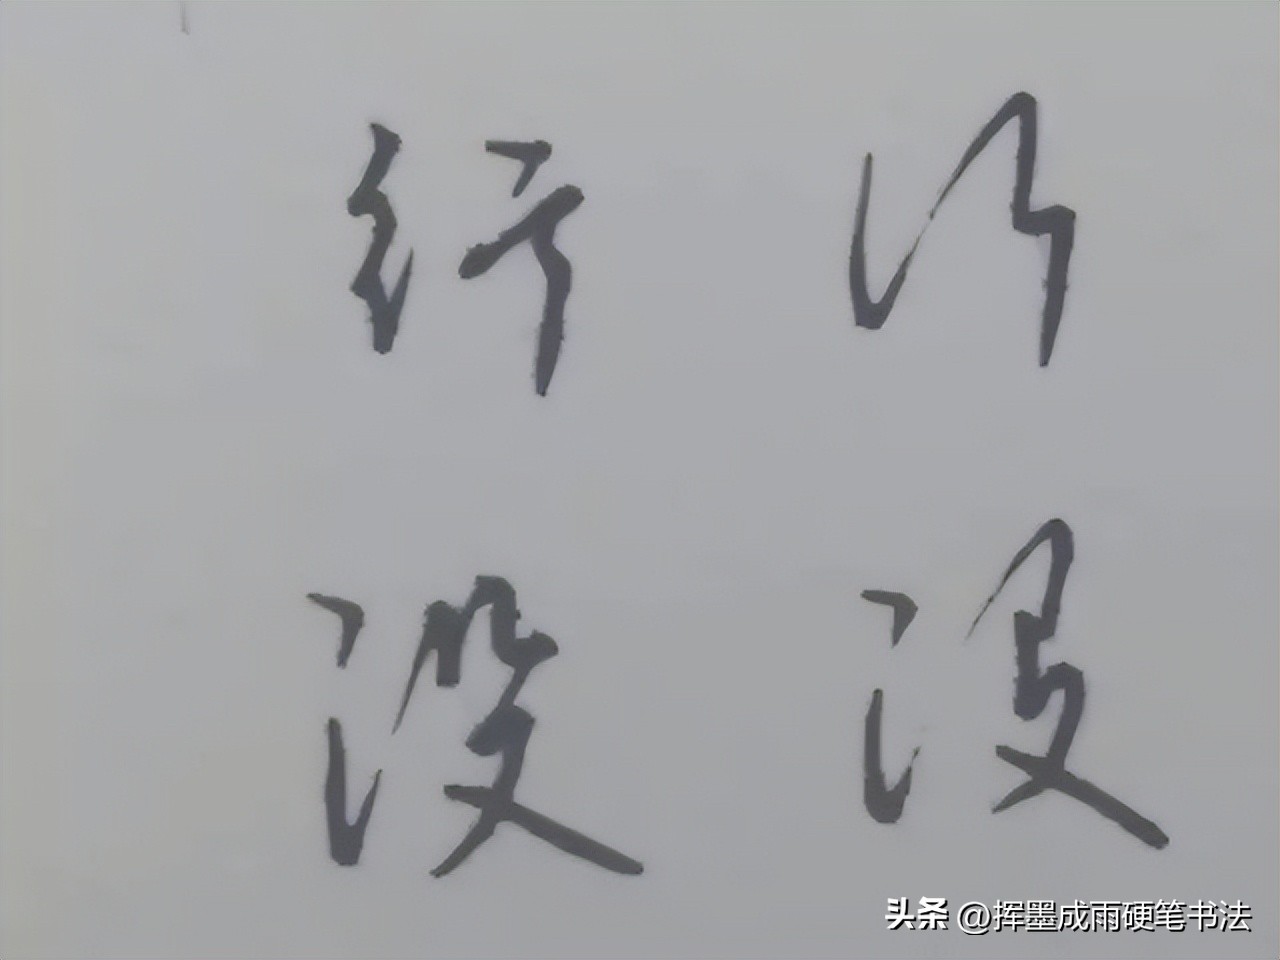 行 行
没 没
头条 @挥墨成雨硬笔书法